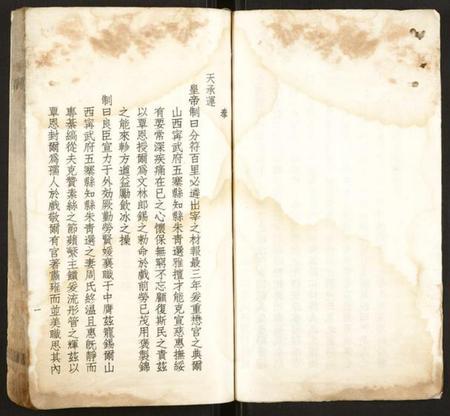 奉
天承運
皇帝制曰分符百里必遴出宰之材報最三年爰重懋官之典爾
山西寧武府五寨縣知縣朱青選雅擅才能克宣慈惠撫綏
有要常深疾痛在己之心懷保無窮不忘顧復斯民之責茲
以覃恩授爾為文林郎錫之勅命於戲前勞已茂用褒製錦
之能來軫方遒益勵飲冰之操
制曰良臣宣力于外効厥勤勞賢媛襄職于中膺茲寵錫爾山
西寧武府五寨縣知縣朱青選之妻周氏終溫且惠既靜而
專綦縞從夫克贊素絲之節蘋蘩主饋爰流彤管之輝茲以
覃恩封爾為孺人於戲敬爾有官著肅雍而並美職思其內